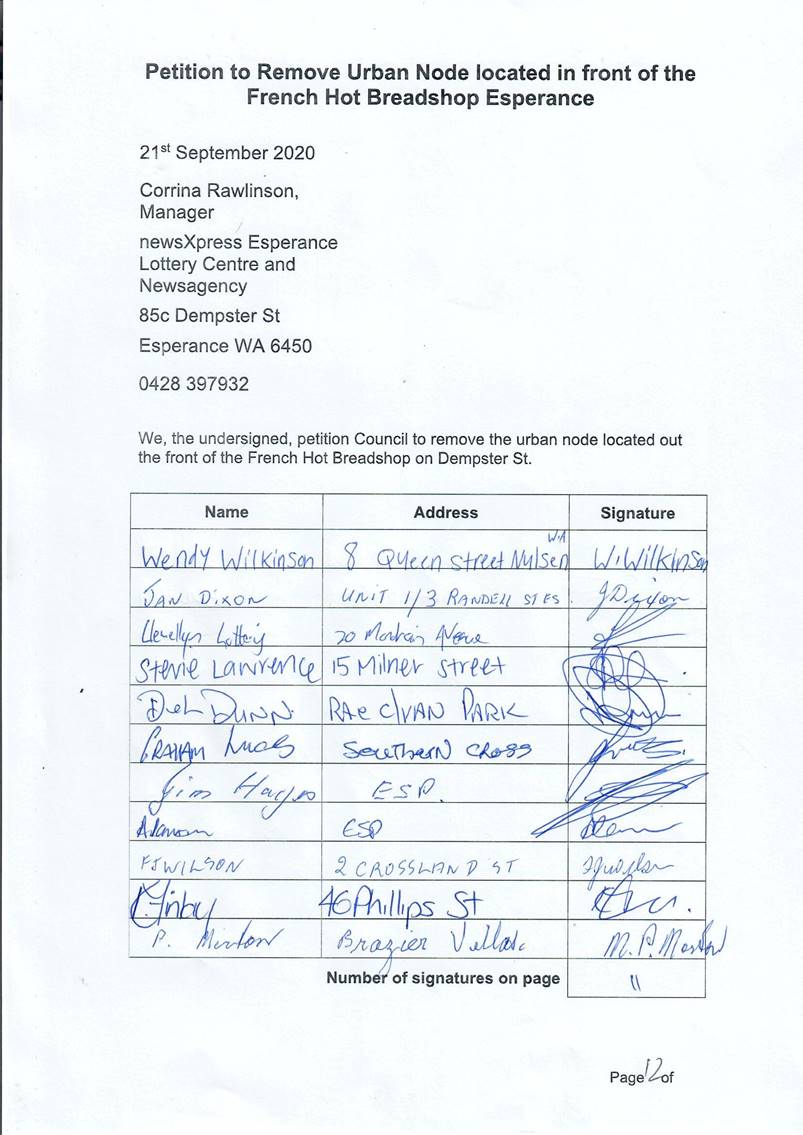 Petition to Remove Urban Node located in front of the
French Hot Breadshop Esperance
21st September 2020
Corrina Rawlinson,
Manager
newsXpress Esperance
Lottery Centre and
Newsagency
85c Dempster St
Esperance WA 6450
0428 397932
We, the undersigned, petition Council to remove the urban node located out
the front of the French Hot Breadshop on Dempster St.
Name Address Signature
Wendy Wilkinson 8 Queen Street Nulsen WA W. Wilkinson
JAN DIXON UNIT 1/3 RANDELL ST ES JDixon
Llewellyn 20
Stevie Lawrence 15 Milner Street
DUNN RAC C/VAN PARK
GRAHAM SOUTHERN CROSS
Jim ESP.
ESP
FJ WILSON 2 CROSSLAND ST
46 Phillips St
P. Brazier M. P.
Number of signatures on page 11
Page 12 of